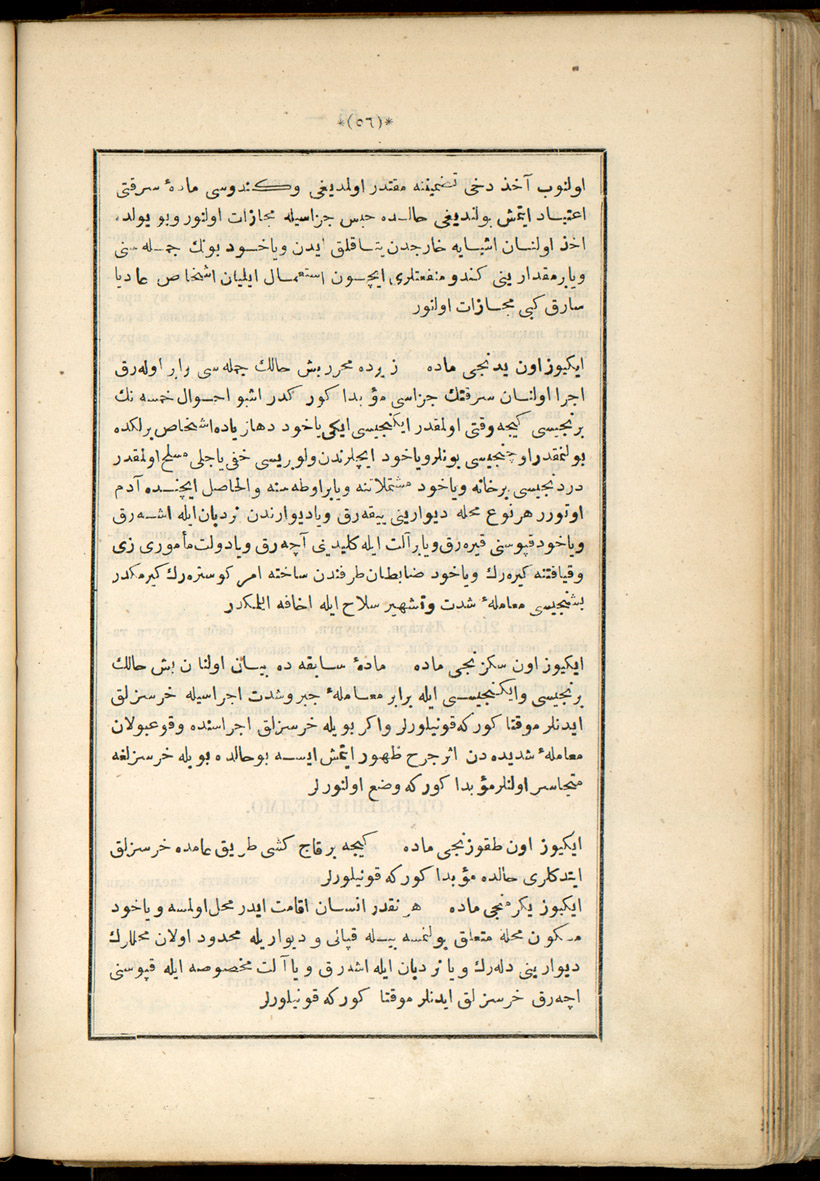 *(٥٦)*
اولنوب آخذ دخی تضمیننه مقتدر اولمدیغی وكندوسی مادهٔ سرقتی
اعتیاد ایتمش بولندیغی حالده حبس جزاسیله مجازات اولنور وبو یولده
اخذ اولنان اشیایه خارجدن یتاقلق ایدن ویاخود بونك جمله سنی
ویا بر مقدارینی كندو منفعتلری ایچون استعمال ایلیان اشخاص عادیا
سارق كبی مجازات اولنور
ایكیوز اون یدنجی ماده زیرده محرر بش حالك جمله سی برابر اوله رق
اجرا اولنان سرقتك جزاسی مؤبدا كوركدر اشبو احوال خمسه نك
برنجیسی كیجه وقتی اولمقدر ایكنجیسی ایكی یاخود دها زیاده اشخاص برلكده
بولنمقدر اوچنجیسی بونلر ویاخود ایچلرندن ولو بریسی خفی یا جلی مسلح اولمقدر
دردنجیسی برخانه ویاخود مشتملاتنه ویا براوطه سنه والحاصل ایچنده آدم
اوتورر هرنوع محله دیوارینی ییقه رق ویا دیوارندن نردبان ایله اشه رق
ویاخود قپوسنی قیره رق ویا برآلت ایله كلیدینی آچه رق ویا دولت مأموری زی
وقیافتنه كیره رك ویاخود ضابطان طرفندن ساخته امر كوستره رك كیرمكدر
بشنجیسی معاملهٔ شدت وتشهیر سلاح ایله اخافه ایلمكدر
ایكیوز اون سكزنجی ماده مادهٔ سابقه ده بیان اولنان بش حالك
برنجیسی وایكنجیسی ایله برابر معاملهٔ جبر وشدت اجراسیله خرسزلق
ایدنلر موقتا كوركه قونیلورلر واكر بویله خرسزلق اجراسنده وقوعبولان
معاملهٔ شدیده دن اثر جرح ظهور ایتمش ایسه بوحالده بویله خرسزلغه
متجاسر اولنلر مؤبدا كوركه وضع اولنورلر
ایكیوز اون طقوزنجی ماده كیجه برقاج كشی طریق عامده خرسزلق
ایتدكلری حالده مؤبدا كوركه قونیلورلر
ایكیوز یكرمنجی ماده هر نقدر انسان اقامت ایدر محل اولمسه ویاخود
مسكون محله متعلق بولنمسه بیله قپانی ودیواریله محدود اولان محللرك
دیوارینی دله رك ویا نردبان ایله اشه رق ویا آلت مخصوصه ایله قپوسنی
اچه رق خرسزلق ایدنلر موقتا كوركه قونیلورلر